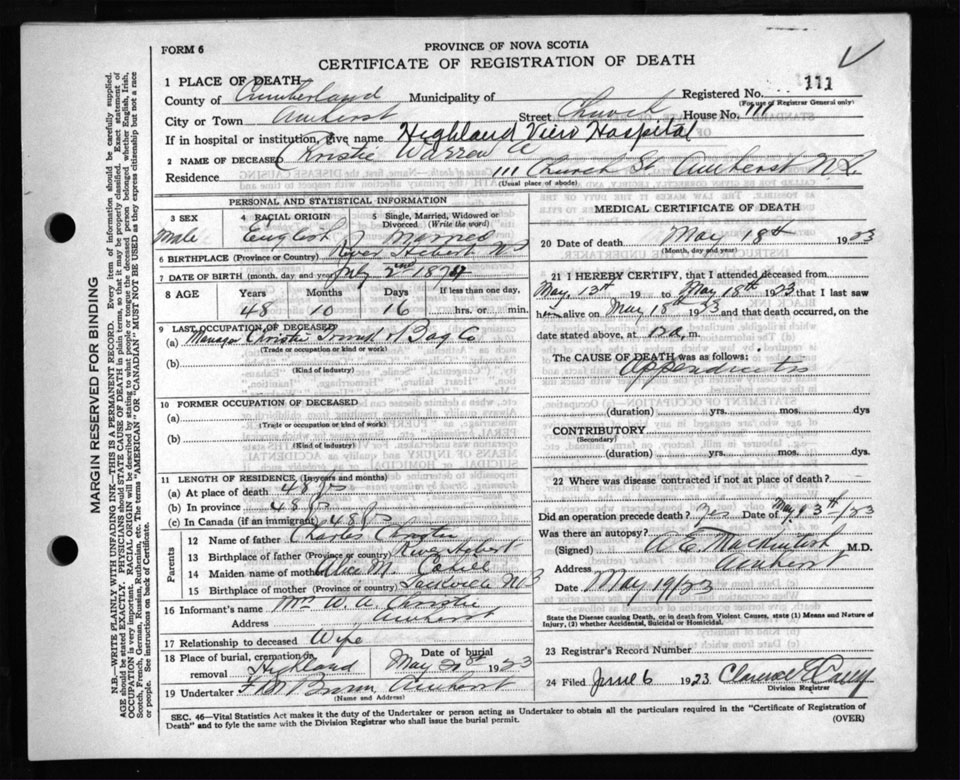 FORM 6
PROVINCE OF NOVA SCOTIA
CERTIFICATE OF REGISTRATION OF DEATH
MARGIN RESERVED FOR BINDING
N.B.—WRITE PLAINLY WITH UNFADING INK—THIS IS A PERMANENT RECORD. Every item of information should be carefully supplied.
AGE should be stated EXACTLY. PHYSICIANS should STATE CAUSE OF DEATH in plain terms, so that it may be properly classified. Exact statement of
OCCUPATION is very important. RACIAL ORIGIN will be described by stating to what people or tongue the deceased person belonged whether English, Irish,
Scotch, French, German, Russian, Ruthenian, etc. The terms "AMERICAN" OR "CANADIAN" MUST NOT BE USED as they express citizenship but not a race
or people. See instructions on back of Certificate.
1 PLACE OF DEATH— Registered No. 111
County of Cumberland Municipality of (For use of Registrar General only)
City or Town Amherst Street Church House No. 111
If in hospital or institution, give name Highland View Hospital
2 NAME OF DECEASED Christie Warren A
Residence 111 Church St. Amherst N.S.
(Usual place of abode)
PERSONAL AND STATISTICAL INFORMATION
3 SEX 4 RACIAL ORIGIN 5 Single, Married, Widowed or Divorced (Write the word)
Male English Married
6 BIRTHPLACE (Province or Country) River Hebert N.S.
7 DATE OF BIRTH (month, day and year) July 2nd 1874
8 AGE Years Months Days If less than one day,
48 10 16 hrs. or min.
9 LAST OCCUPATION OF DECEASED
(a) Manager Christie Trunk & Bag Co
(Trade or occupation or kind of work)
(b)
(Kind of industry)
10 FORMER OCCUPATION OF DECEASED
(a)
(Trade or occupation or kind of work)
(b)
(Kind of industry)
11 LENGTH OF RESIDENCE (In years and months)
(a) At place of death 48 yrs
(b) In province 48 yrs
(c) In Canada (if an immigrant) 48 yrs
Parents
12 Name of father Charles Christie
13 Birthplace of father (Province or country) River Hebert
14 Maiden name of mother Alice M.
15 Birthplace of mother (Province or country) Sackville NB
16 Informant's name Mrs W. A. Christie
Address Amherst
17 Relationship to deceased Wife
18 Place of burial, cremation or removal Date of burial
Highland May 20th 1923
19 Undertaker Amherst
(Name and Address)
MEDICAL CERTIFICATE OF DEATH
20 Date of death May 18th 1923
(Month, day and year)
21 I HEREBY CERTIFY, that I attended deceased from
May 13th 19 to May 18th 1923 that I last saw
him alive on May 18th 1923 and that death occurred, on the
date stated above, at m.
The CAUSE OF DEATH was as follows:
Appendicitis
(duration) yrs. mos. dys
CONTRIBUTORY
(Secondary)
(duration) yrs. mos. dys.
22 Where was disease contracted if not at place of death?
Did an operation precede death? Yes Date of May 13th/23
Was there an autopsy?
(Signed) A. E. Mackintosh M.D.
Address Amherst
Date May 19/23
State the Disease causing Death, or in death from Violent Causes, state (1) Means and Nature of
Injury, (2) whether Accidental, Suicidal or Homicidal.
23 Registrar's Record Number
24 Filed June 6 1923 Clarence E Casey
Division Registrar
SEC. 46—Vital Statistics Act makes it the duty of the Undertaker or person acting as Undertaker to obtain all the particulars required in the "Certificate of Registration of
Death" and to fyle the same with the Division Registrar who shall issue the burial permit. (OVER)